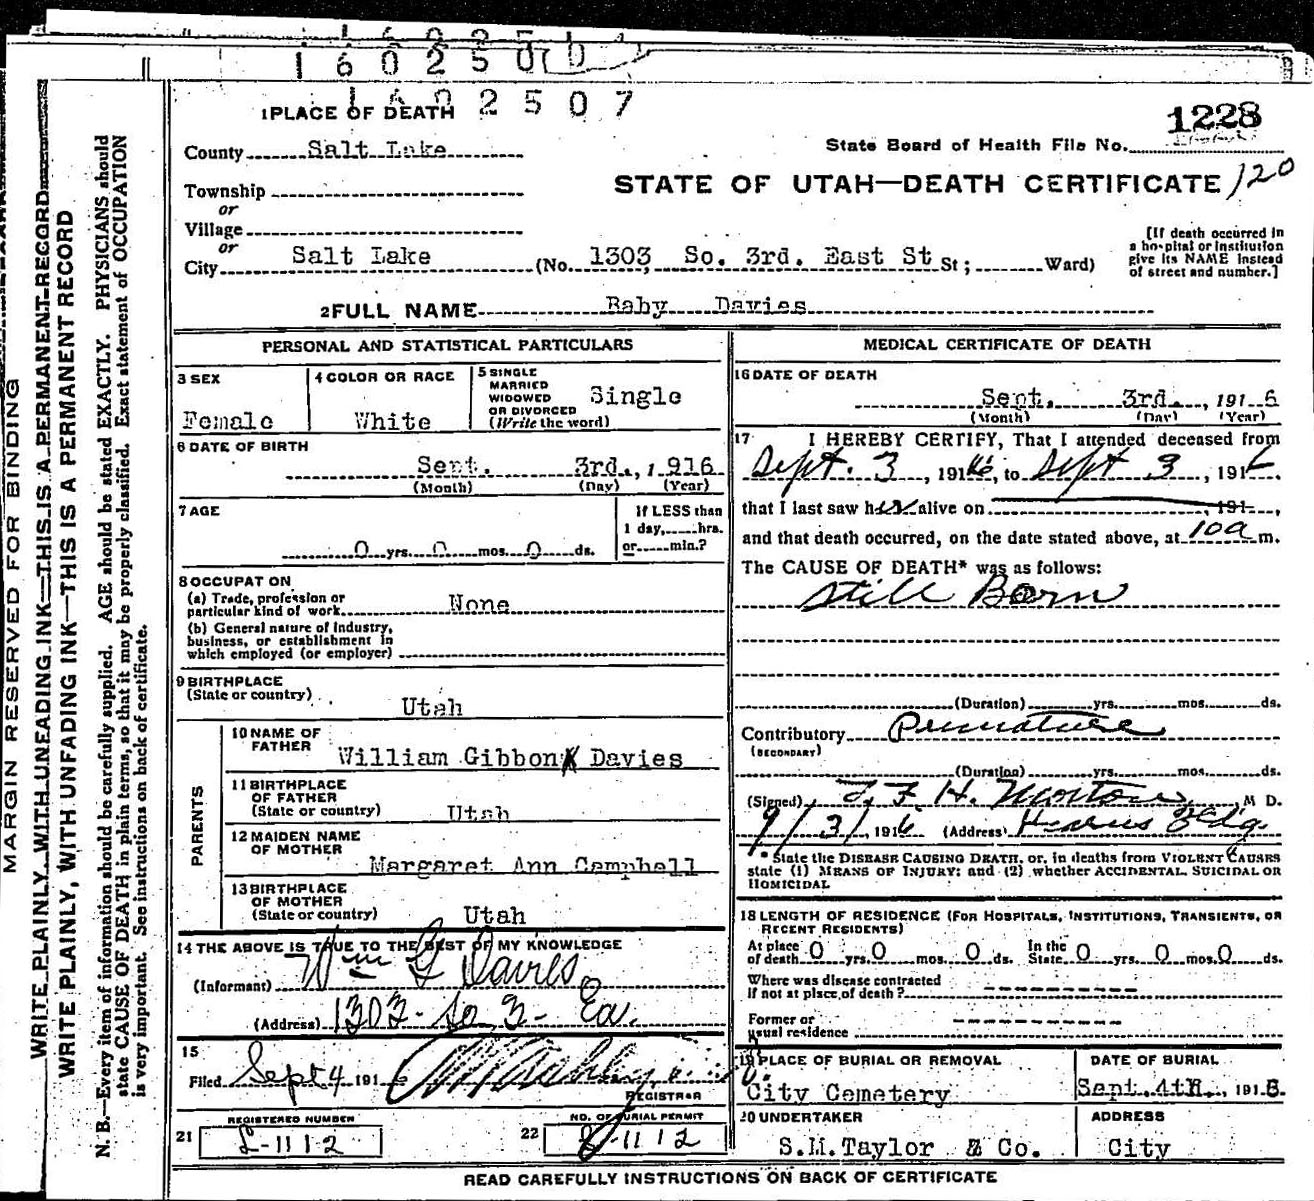 1602507
1PLACE OF DEATH
1228
County Salt Lake
State Board of Health File No.
Township
STATE OF UTAH—DEATH CERTIFICATE 120
or
Village
or
City Salt Lake (No. 1303 So. 3rd. East St St; Ward)
[If death occurred in
a hospital or institution
give its NAME instead
of street and number.]
2FULL NAME Baby Davies
PERSONAL AND STATISTICAL PARTICULARS
3 SEX
Female
4 COLOR OR RACE
White
5 SINGLE
MARRIED
WIDOWED
OR DIVORCED
(Write the word)
Single
6 DATE OF BIRTH
Sept. 3rd., 1 916
(Month) (Day) (Year)
7 AGE
0 yrs. 0 mos. 0 ds.
If LESS than
1 day, hrs.
or min.?
8 OCCUPAT ON
(a) Trade, profession or
particular kind of work None
(b) General nature of industry,
business, or establishment in
which employed (or employer)
9 BIRTHPLACE
(State or country)
Utah
PARENTS
10 NAME OF
FATHER
William Gibbon Davies
11 BIRTHPLACE
OF FATHER
(State or country) Utah
12 MAIDEN NAME
OF MOTHER
Margaret Ann Campbell
13 BIRTHPLACE
OF MOTHER
(State or country) Utah
14 THE ABOVE IS TRUE TO THE BEST OF MY KNOWLEDGE
(Informant) Wm G Davies
(Address) 1303 - So 3 - Ea.
15
Filed Sept 4 191 6
REGISTRAR
REGISTERED NUMBER
21 L-1112
NO. OF BURIAL PERMIT
22 L-1112
MEDICAL CERTIFICATE OF DEATH
16 DATE OF DEATH
Sept. 3rd. , 191 6
(Month) (Day) (Year)
17 I HEREBY CERTIFY, That I attended deceased from
Sept. 3 , 1916, to Sept 3 , 1916.
that I last saw her alive on , 191 ,
and that death occurred, on the date stated above, at 10a m.
The CAUSE OF DEATH* was as follows:
Still Born
(Duration) yrs. mos. ds.
Contributory Premature
(SECONDARY)
(Duration) yrs. mos. ds.
(Signed) T. F. H. Morton , M D.
9/3/, 1916 (Address)
* State the DISEASE CAUSING DEATH, or, in deaths from VIOLENT CAUSES
state (1) MEANS OF INJURY; and (2) whether ACCIDENTAL, SUICIDAL OR
HOMICIDAL
18 LENGTH OF RESIDENCE (FOR HOSPITALS, INSTITUTIONS, TRANSIENTS, OR
RECENT RESIDENTS)
At place
of death 0 yrs. 0 mos. 0 ds. In the
State 0 yrs. 0 mos. 0 ds.
Where was disease contracted
if not at place of death?
Former or
usual residence
19 PLACE OF BURIAL OR REMOVAL
City Cemetery
DATE OF BURIAL
Sept. 4th., 1916.
20 UNDERTAKER
S.M.Taylor & Co.
ADDRESS
City
READ CAREFULLY INSTRUCTIONS ON BACK OF CERTIFICATE
MARGIN RESERVED FOR BINDING
WRITE PLAINLY, WITH UNFADING INK—THIS IS A PERMANENT RECORD
WRITE PLAINLY, WITH UNFADING INK—THIS IS A PERMANENT RECORD
N. B.—Every item of information should be carefully supplied. AGE should be stated EXACTLY. PHYSICIANS should
state CAUSE OF DEATH in plain terms, so that it may be properly classified. Exact statement of OCCUPATION
is very important. See instructions on back of certificate.